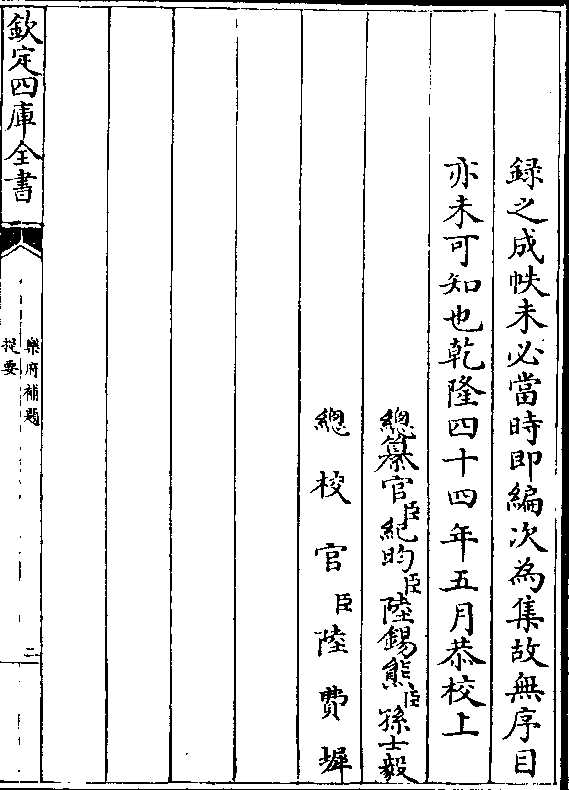 録之成帙未必當時即編次為集故無序目
亦未可知也乾隆四十四年五月恭校上
總纂官臣紀昀臣陸錫熊臣孫士毅
總校官臣陸費墀
欽定四庫全書
樂府補題
提要
二